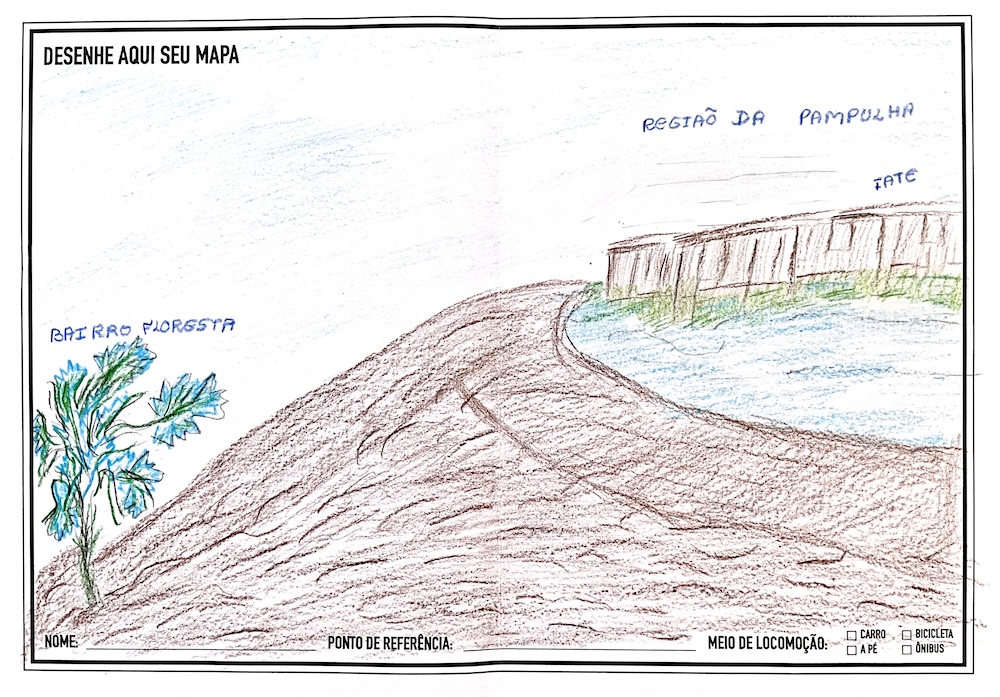 DESENHE AQUI SEU MAPA
REGIAÕ DA PAMPULHA
IATE
BAIRRO FLORESTA
NOME:
PONTO DE REFERÊNCIA:
MEIO DE LOCOMOÇÃO:
CARRO
BICICLETA
A PÉ
ÔNIBUS